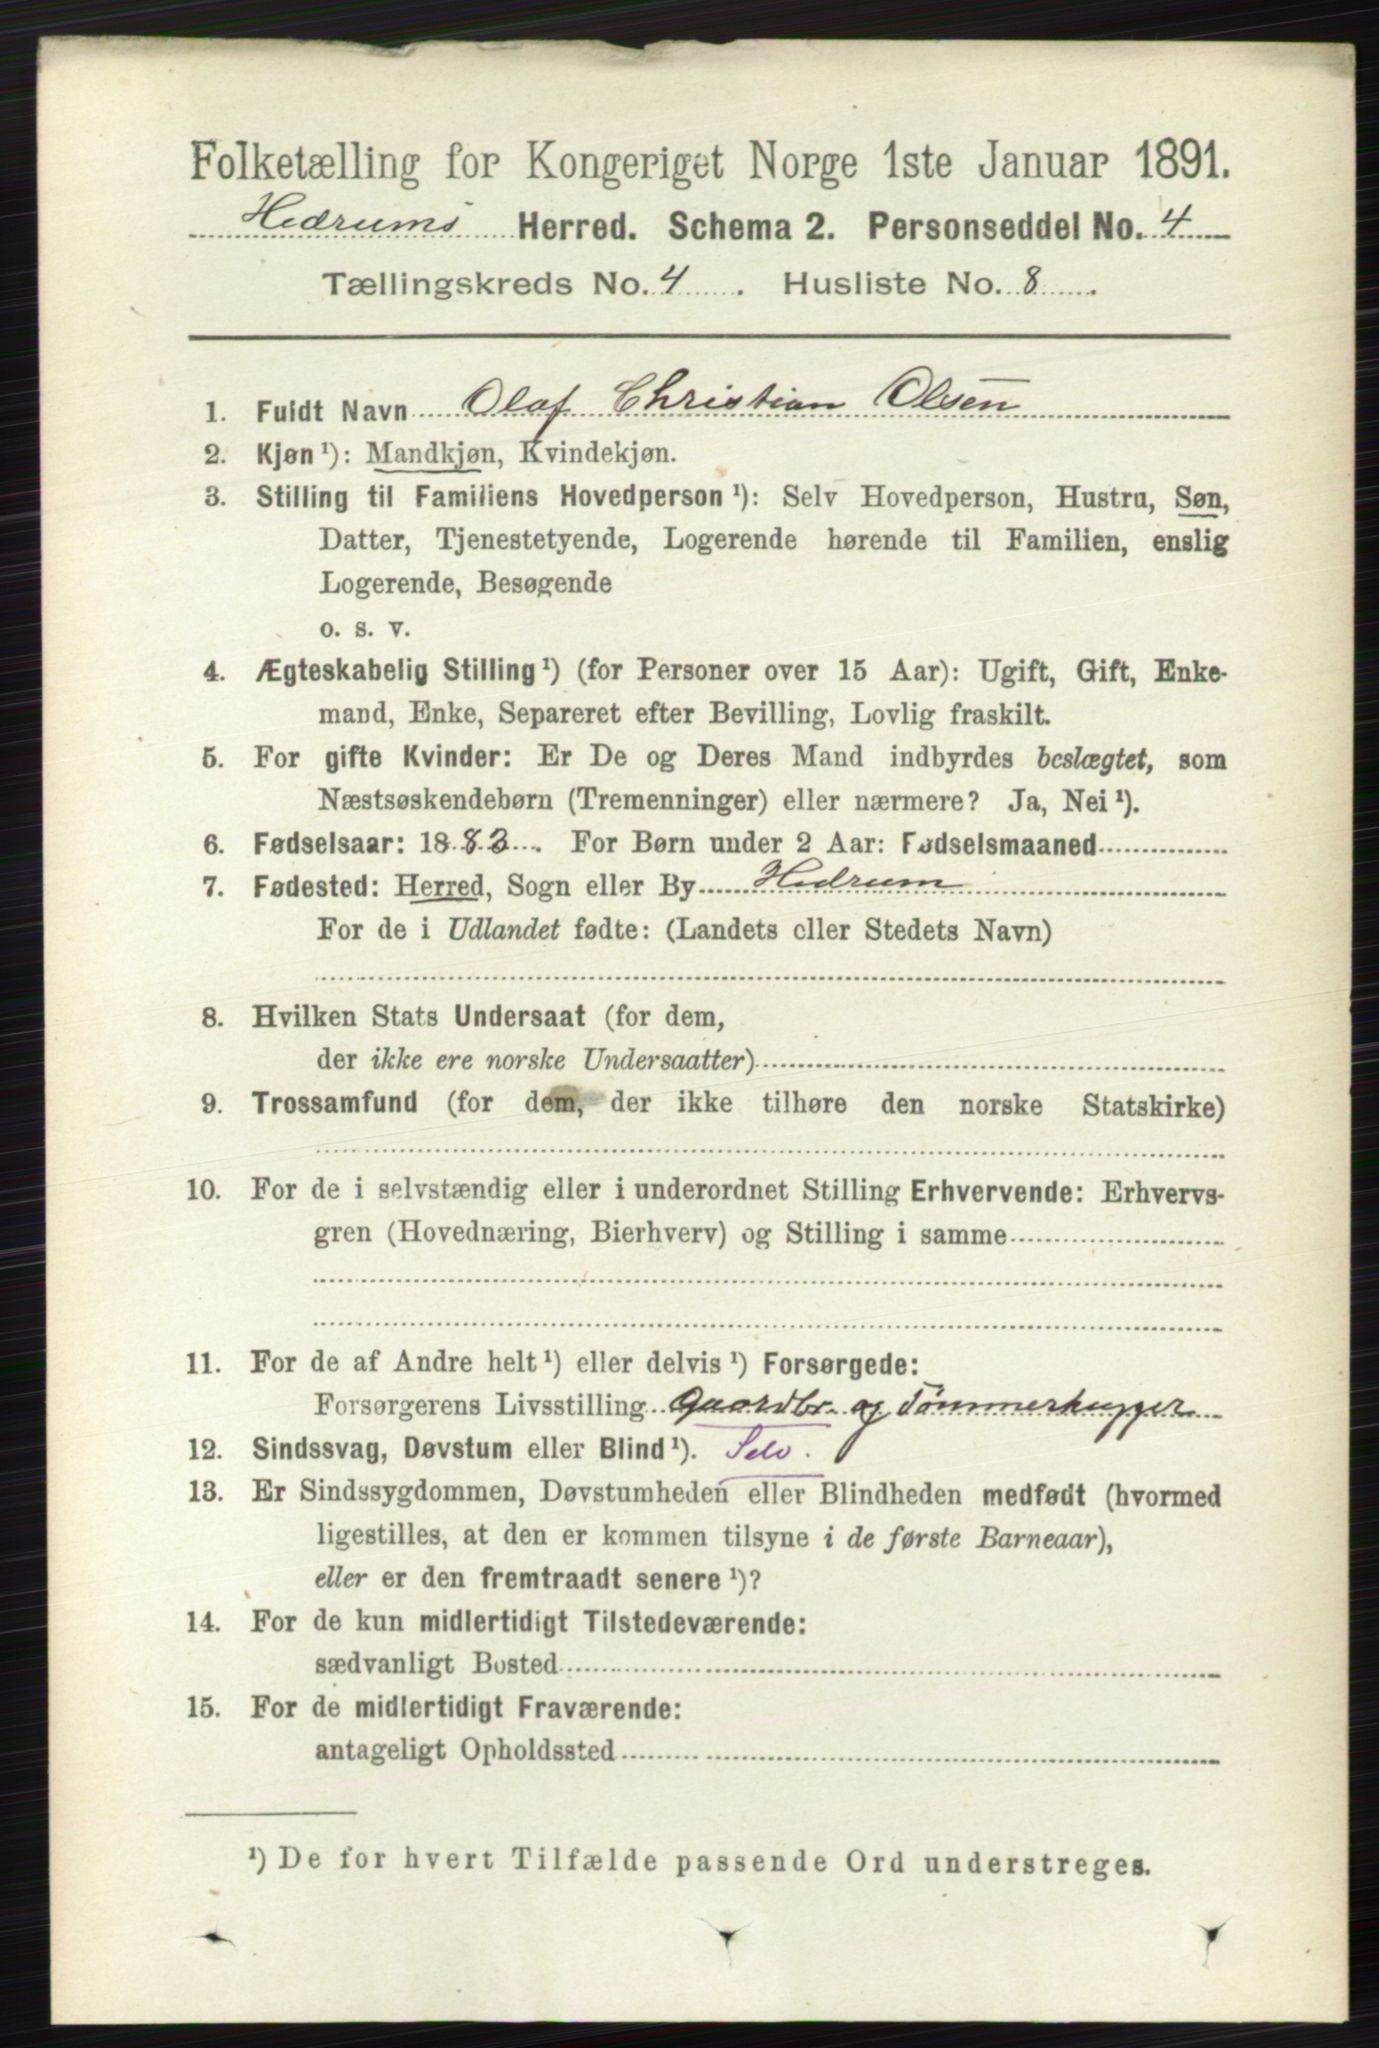 Folketælling for Kongeriget Norge 1ste Januar 1891.
Hedrums Herred. Schema 2. Personseddel No. 4
Tællingskreds No. 4. Husliste No. 8.
1. Fuldt Navn Olaf Christian Olsen
2. Kjøn ¹): Mandkjøn, Kvindekjøn.
3. Stilling til Familiens Hovedperson ¹): Selv Hovedperson, Hustru, Søn,
Datter, Tjenestetyende, Logerende hørende til Familien, enslig
Logerende, Besøgende
o. s. v.
4. Ægteskabelig Stilling ¹) (for Personer over 15 Aar): Ugift, Gift, Enke-
mand, Enke, Separeret efter Bevilling, Lovlig fraskilt.
5. For gifte Kvinder: Er De og Deres Mand indbyrdes beslægtet, som
Næstsøskendebørn (Tremenninger) eller nærmere? Ja, Nei ¹).
6. Fødselsaar: 1883. For Børn under 2 Aar: Fødselsmaaned
7. Fødested: Herred, Sogn eller By Hedrum
For de i Udlandet fødte: (Landets eller Stedets Navn)
8. Hvilken Stats Undersaat (for dem,
der ikke ere norske Undersaatter)
9. Trossamfund (for dem, der ikke tilhøre den norske Statskirke)
10. For de i selvstændig eller i underordnet Stilling Erhvervende: Erhvervs-
gren (Hovednæring, Bierhverv) og Stilling i samme
11. For de af Andre helt ¹) eller delvis ¹) Forsørgede:
Forsørgerens Livsstilling Gaardbr. og Tømmerhugger
12. Sindssvag, Døvstum eller Blind ¹). Selv.
13. Er Sindssygdommen, Døvstumheden eller Blindheden medfødt (hvormed
ligestilles, at den er kommen tilsyne i de første Barneaar),
eller er den fremtraadt senere ¹)?
14. For de kun midlertidigt Tilstedeværende:
sædvanligt Bosted
15. For de midlertidigt Fraværende:
antageligt Opholdssted
¹) De for hvert Tilfælde passende Ord understreges.